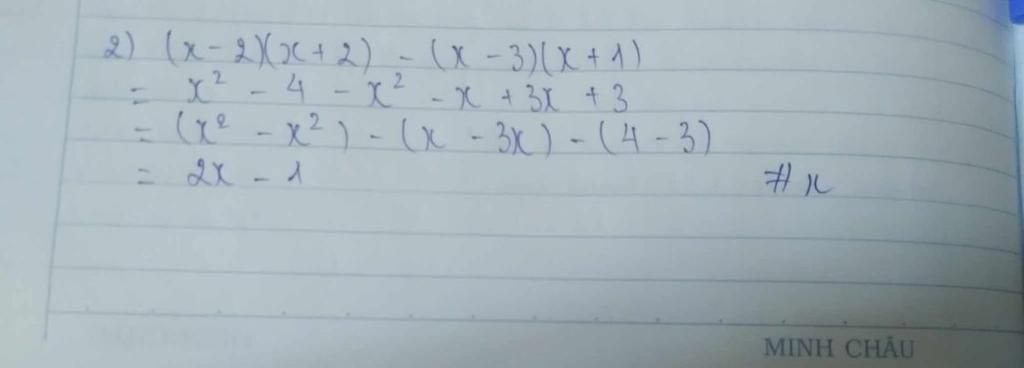 2) (x-2)(x+2) - (x-3)(x+1)
= x² - 4 - x² - x + 3x + 3
= (x² - x²) - (x - 3x) - (4 - 3)
= 2x - 1 # x
MINH CHÂU